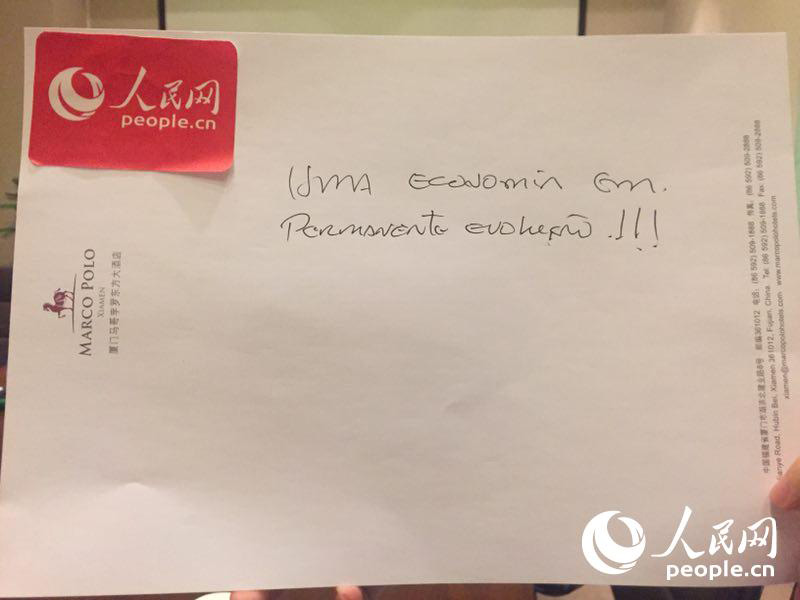 人民网
people.cn
UMA ECONOMIA EM.
PERMANENTE EVOLUÇÃO.!!!
MARCO POLO
XIAMEN
厦门马哥孛罗东方大酒店
中国福建省厦门市湖滨北建业路8号 邮编361012 电话: (86 592) 509-1888 传真: (86 592) 509-2888
ianye Road, Hubin Bei, Xiamen 361012, Fujian, China Tel: (86 592) 509-1888 Fax: (86 592) 509-2888
xiamen@marcopolohotels.com www.marcopolohotels.com
人民网
people.cn